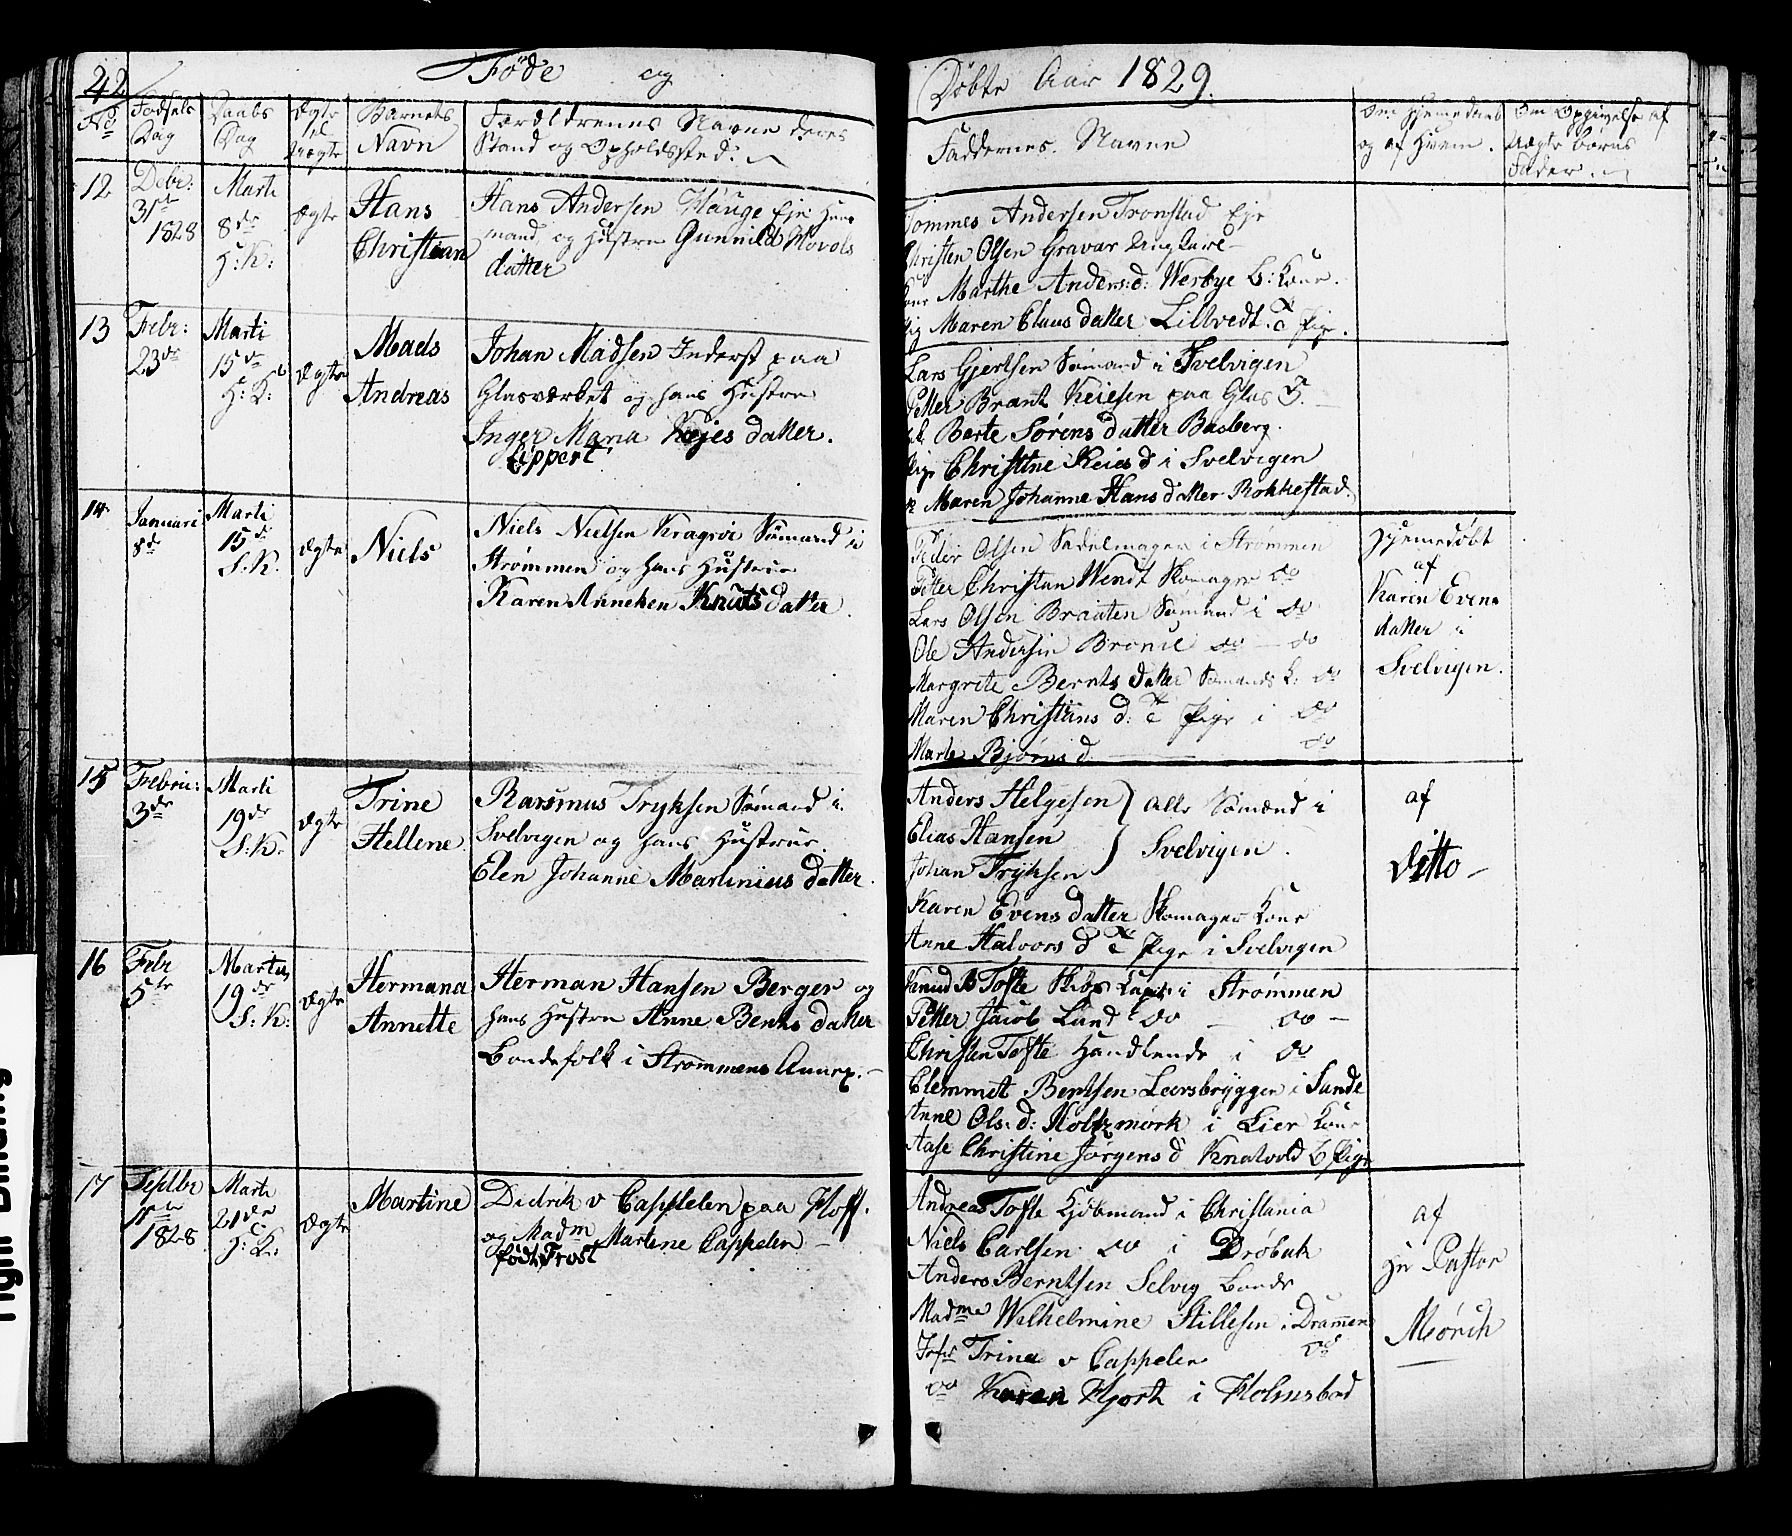 242
Føde og Døbte Aar 1829.
No
Fødsels Dag
Daabs Dag
Ægte el uægte
Barnets Navn
Forældrenes Navne deres Stand og Opholdssted.
Faddernes Navne
Om Hjemedøbt og af Hvem.
Om Opgivelse af Uægte børns Fader.
12
Debr: 31te 1828
Marti 8de H: K:
Ægte
Hans Christian
Hans Andersen Hauge Eje Huus
mand og Hustru Gunnild Hovels
datter
Tommes Andersen Tronstad Eje
Christen Olsen Gravar Ungkarl
Kone Marthe Anders: d: Werbye b: Kone.
Pig Maren Claus datter Lillvedt. Pige.
13
Febr: 23de
Marti 15de H: K:
Ægte
Mads Andreas
Johan Madsen Inderst paa
Glasværket og hans Hustru
Inger Maria Kejes datter.
Eppert
Lars Gjertsen Sømand i Svelvigen
Petter Brant Keiesen paa Glas V.
Berte Sørens datter Basberg.
Pige Christine Keies d i Svelvigen
Maren Johanne Hans datter Rokkestad
14
Januari 8de
Marti 15de S. K.
Ægte
Niels
Niels Nielsen Kragrøe Sømand i
Strømmen og hans Hustrue
Karen Anneken Knuts datter.
Peder Olsen Sadelmager i Strømmen
Petter Christian Wendt Skomager do
Lars Olsen Brauten Sømand i do
Ole Andersen Brone do - do
Margrete Bernts datter Sømands K: do
Maren Christians d: Pige i do
Marte Bjørns d do
Hjemedøbt
af
Karen Evens
datter i
Svelvigen.
15
Februr: 3de
Marti 19de S: K:
Ægte
Trine Hellene
Rasmus Tryksen Sømand i
Svelvigen og hans Hustrue.
Elen Johanne Martinius datter.
Anders Helgesen } alle Sømænd i
Elias Hansen
Johan Tryksen } Svelvigen.
Karen Evens datter Skomager Kone
Anne Halvors d Pige i Svelvigen
af
Ditto -
16
Febr 5te
Martii 19de S: K:
Ægte
Hermana Annette
Herman Hansen Berger og
hans Hustru Anne Bents datter
Bondefolk i Strømmens Annex. -
Knud B Tofte Skibs Kapt: i Strømmen
Petter Jacob Lund do - do -
Christen Tofte Handlende i do
Clemmet Bentsen Leersbryggen i Sande
Anne Ols: d: Holtzmørk i Lier Kone
Aase Christine Jørgens d Knatvold b Pige
17
Septbr 11te 1828
Marti 21de H: K:
Ægte
Martine
Didrik v Cappelen paa Hoff.
og Madm Martene Cappelen -
født Frost
Andreas Tofte Kjøbmand i Christiania
Niels Carlsen do i Drøbak
Anders Berntsen Selvig Bonde
Madme Wilhelmine Stillesen i Drammen
Jofr Trine v Cappelen do
do Karen Hjort i Holmsbod
af
Hr Pastor
Mørch